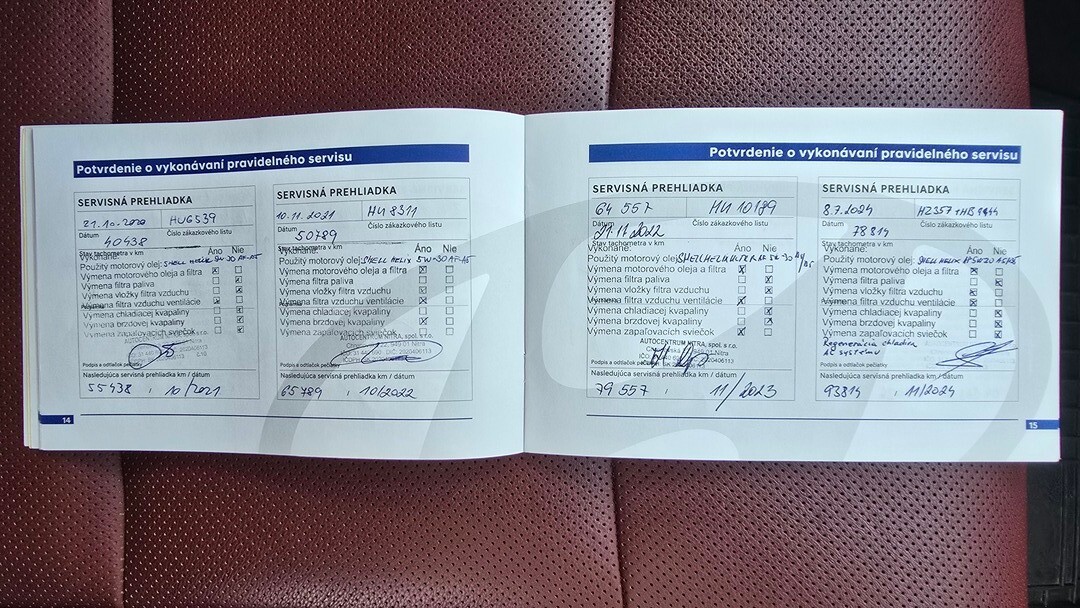 Potvrdenie o vykonávaní pravidelného servisu
SERVISNÁ PREHLIADKA
21.10.2020 HU6539
Dátum Číslo zákazkového listu
40438
Stav tachometra v km
Vykonané: Áno Nie
Použitý motorový olej: SHELL
Výmena motorového oleja a filtra
Výmena filtra paliva
Výmena vložky filtra vzduchu
Výmena filtra vzduchu ventilácie
Výmena chladiacej kvapaliny
Výmena brzdovej kvapaliny
Výmena zapaľovacích sviečok
Podpis a odtlačok pečiatky
Nasledujúca servisná prehliadka km / dátum
55438 , 10/2021
14
SERVISNÁ PREHLIADKA
10.11.2021 HU 8311
Dátum Číslo zákazkového listu
50789
Stav tachometra v km
Vykonané: Áno Nie
Použitý motorový olej: SHELL HELIX 5W-30
Výmena motorového oleja a filtra
Výmena filtra paliva
Výmena vložky filtra vzduchu
Výmena filtra vzduchu ventilácie
Výmena chladiacej kvapaliny
Výmena brzdovej kvapaliny
Výmena zapaľovacích sviečok
AUTOCENTRUM NITRA, spol. s r.o.
949 01 Nitra
Podpis a odtlačok pečiatky
Nasledujúca servisná prehliadka km / dátum
65789 , 10/2022
Potvrdenie o vykonávaní pravidelného servisu
SERVISNÁ PREHLIADKA
64 557 HU 10189
Dátum Číslo zákazkového listu
21.11.2022
Stav tachometra v km
Vykonané: Áno Nie
Použitý motorový olej: SHELL
Výmena motorového oleja a filtra
Výmena filtra paliva
Výmena vložky filtra vzduchu
Výmena filtra vzduchu ventilácie
Výmena chladiacej kvapaliny
Výmena brzdovej kvapaliny
Výmena zapaľovacích sviečok
AUTOCENTRUM NITRA, spol. s r.o.
Podpis a odtlačok pečiatky
Nasledujúca servisná prehliadka km / dátum
79 557 , 11/2023
SERVISNÁ PREHLIADKA
8.7.2024 HZ357
Dátum Číslo zákazkového listu
78814
Stav tachometra v km
Vykonané: Áno Nie
Použitý motorový olej: SHELL HELIX
Výmena motorového oleja a filtra
Výmena filtra paliva
Výmena vložky filtra vzduchu
Výmena filtra vzduchu ventilácie
Výmena chladiacej kvapaliny
Výmena brzdovej kvapaliny
Výmena zapaľovacích sviečok
Regenerácia chladiva
AC systému
Podpis a odtlačok pečiatky
Nasledujúca servisná prehliadka km / dátum
93814 , 11/2024
15